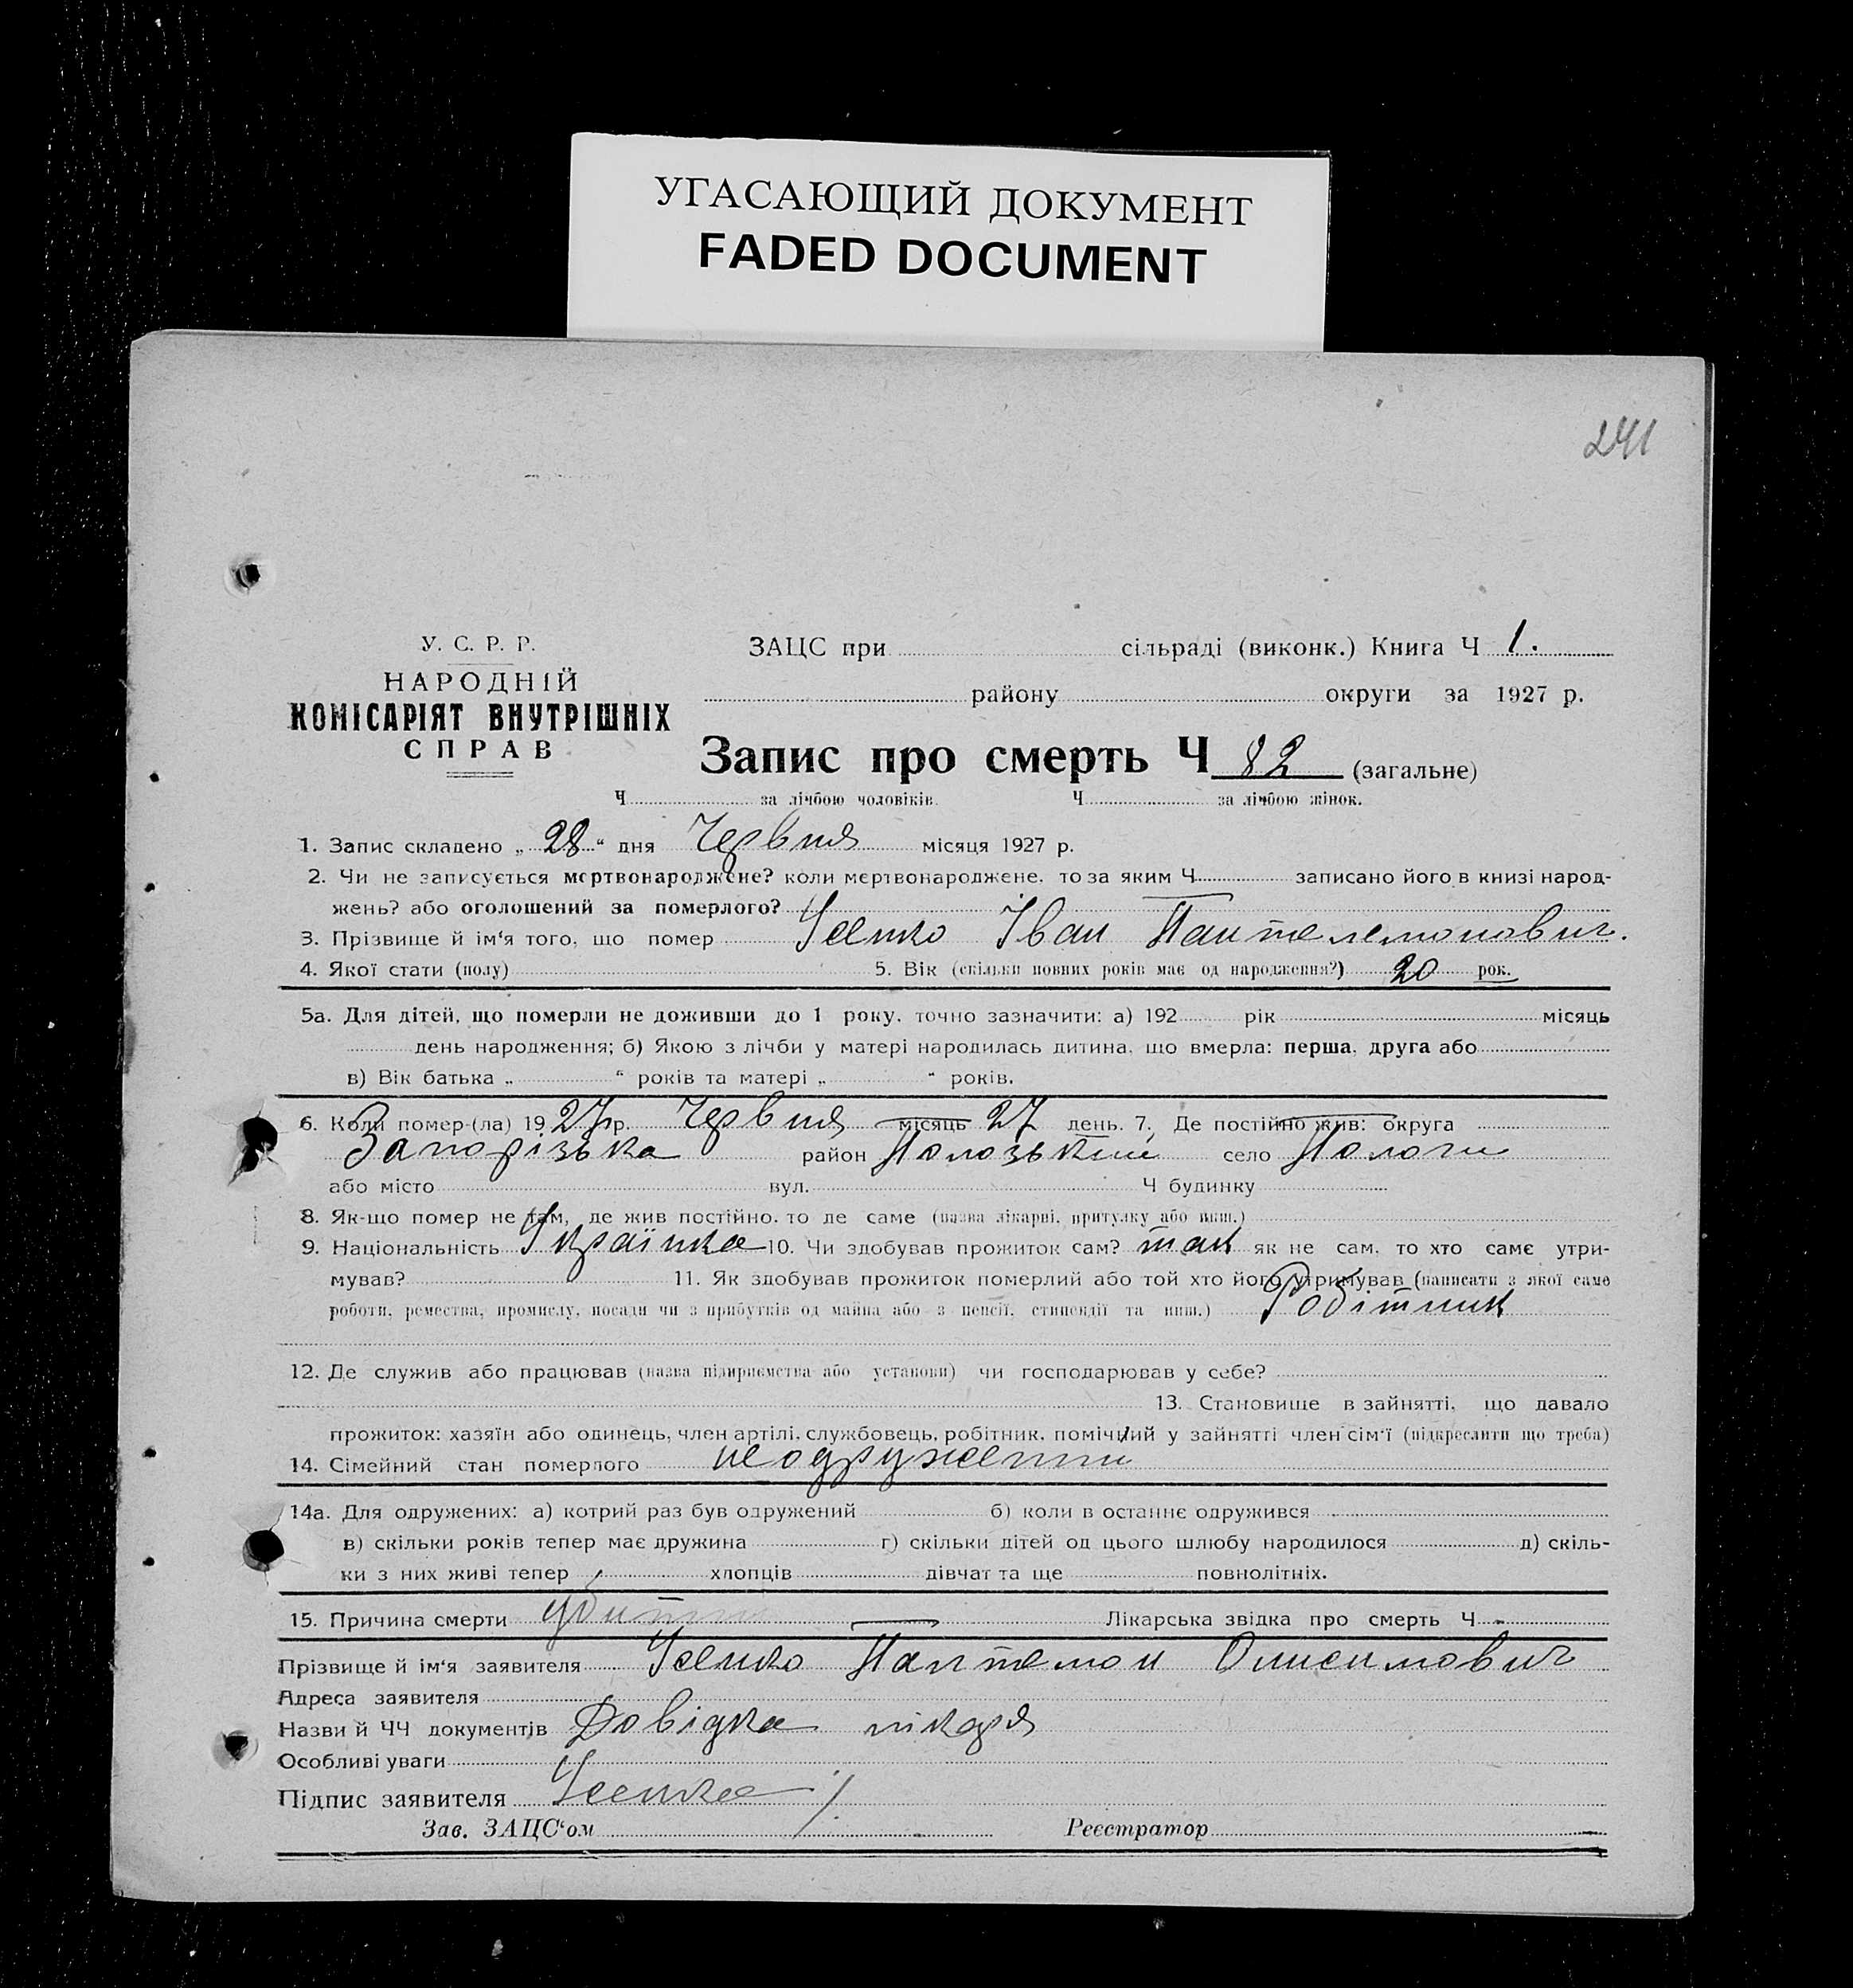 УГАСАЮЩИЙ ДОКУМЕНТ
FADED DOCUMENT
241
У. С. Р. Р.
НАРОДНІЙ
КОМІСАРІЯТ ВНУТРІШНІХ
СПРАВ
ЗАЦС при сільраді (виконк.) Книга Ч 1.
району округи за 1927 р.
Запис про смерть Ч 82 (загальне)
Ч за лічбою чоловіків. Ч за лічбою жінок.
1. Запис складено „ 28 “ дня Червня місяця 1927 р.
2. Чи не записується мертвонароджене? коли мертвонароджене, то за яким Ч записано його в книзі народ-
жень? або оголошений за померлого?
3. Прізвище й ім'я того, що помер Усенко Іван Пантелемонович.
4. Якої стати (полу) 5. Вік (скільки повних років має од народження?) 20 рок.
5а. Для дітей, що померли не доживши до 1 року, точно зазначити: а) 192 рік місяць
день народження; б) Якою з лічби у матері народилась дитина, що вмерла: перша, друга або
в) Вік батька „ “ років та матері „ “ років.
6. Коли помер-(ла) 1927 р. Червня місяць 27 день. 7. Де постійно жив: округа
Запорізька район Пологзький село Пологи
або місто вул. Ч будинку
8. Як-що помер не там, де жив постійно, то де саме (назва лікарні, притулку або инш.)
9. Національність Українка 10. Чи здобував прожиток сам? так як не сам, то хто саме утри-
мував? 11. Як здобував прожиток померлий або той хто його утримував (написати з якої саме
роботи, ремества, промислу, посади чи з прибутків од майна або з пенсії, стипендії та инш.) Робітник
12. Де служив або працював (назва підприємства або установи) чи господарював у себе?
13. Становище в зайнятті, що давало
прожиток: хазяїн або одинець, член артілі, службовець, робітник, помічний у зайнятті член сім'ї (підкреслити що треба)
14. Сімейний стан померлого неодружений
14а. Для одружених: а) котрий раз був одружений б) коли в останнє одружився
в) скільки років тепер має дружина г) скільки дітей од цього шлюбу народилося д) скіль-
ки з них живі тепер хлопців дівчат та ще повнолітніх.
15. Причина смерти убитий Лікарська звідка про смерть Ч -
Прізвище й ім'я заявителя Усенко Пантемон Онисимович
Адреса заявителя
Назви й ЧЧ документів Довідка лікаря
Особливі уваги
Підпис заявителя Усенко
Зав. ЗАЦС'ом Реєстратор